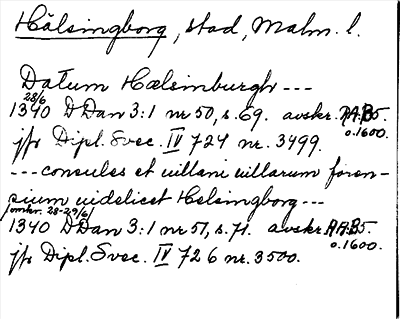 Hälsingborg, stad, Malm. l.
Datum Hælsinburgh ---
28/6
1340 D Dan 3:1 nr 50, s. 69. avskr. RAB5.
o. 1600.
jfr Dipl. Svec. IV 724 nr. 3499.
--- consules et uillani uillarum foren-
sium uidelicet Helsingborg ---
/omkr. 28-29/6/
1340 D Dan 3:1 nr 51, s. 71. avskr. RAB5.
o. 1600.
jfr Dipl. Svec. IV 726 nr. 3500.